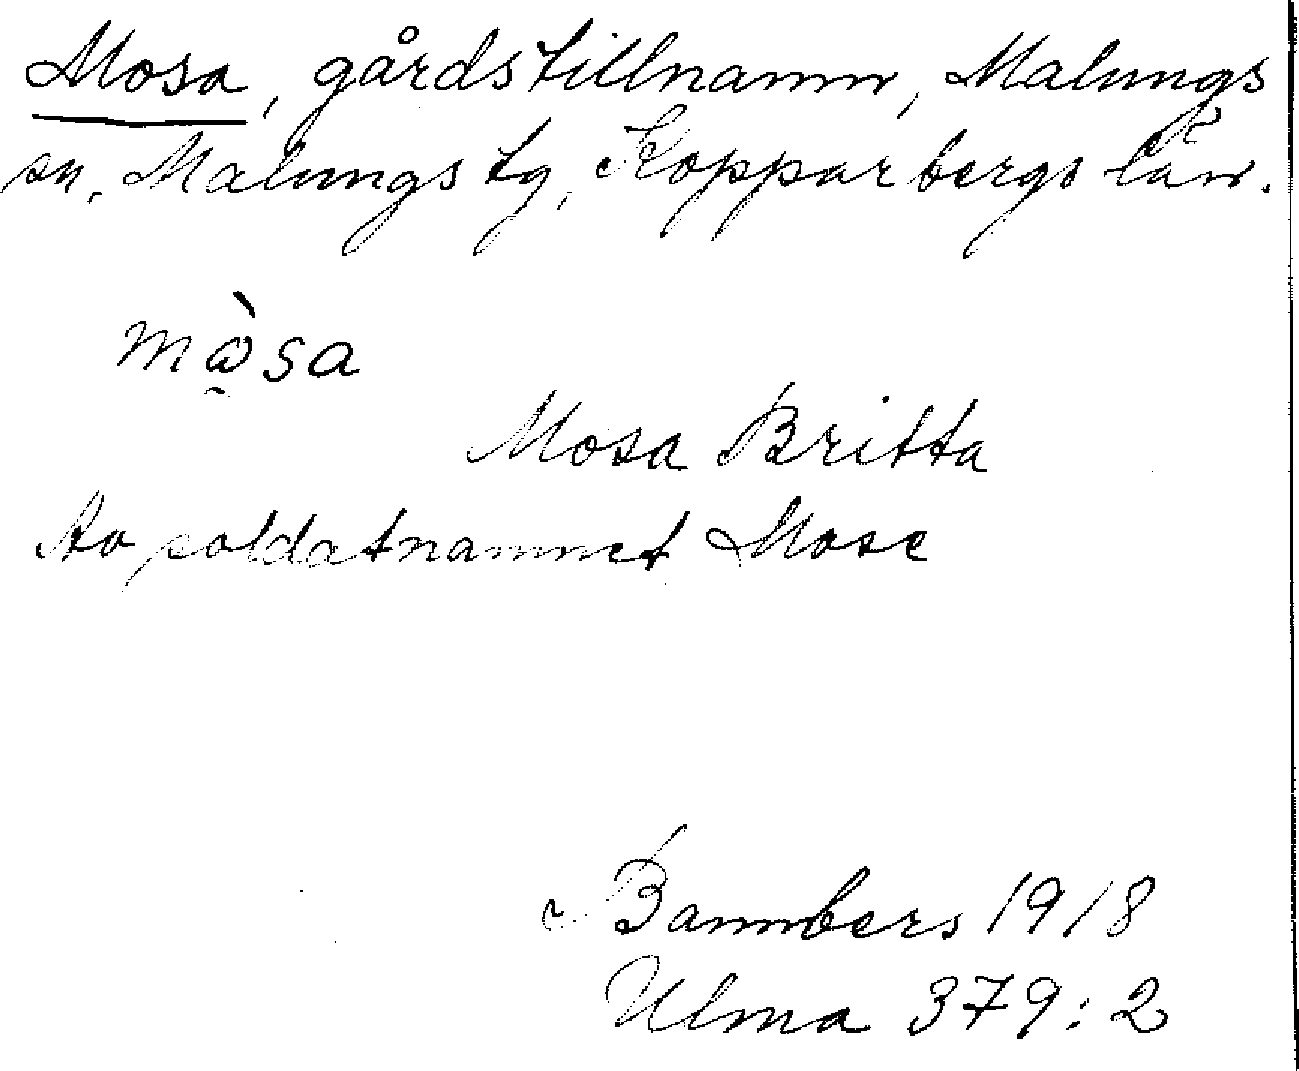 Mosa, gårdstillnamn, Malungs
sn, Malungs tg, Kopparbergs län.
mò̰sa
Mosa Britta
Av soldatnamnet Mose
Bannbers 1918
Ulma 379:2